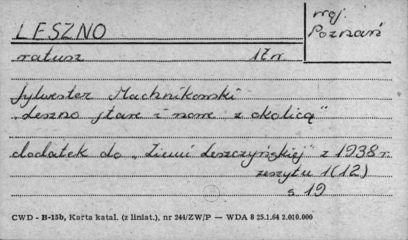 LESZNO
woj. Poznań
ratusz 17 w.
Sylwester Machnikowski
"Leszno stare i nowe z okolicą"
dodatek do "Ziemi Leszczyńskiej" z 1938 r.
zeszytu 1(12)
s 19
CWD - B-15b, Karta katal. (z liniat.), nr 244/ZW/P — WDA 8 25.1.64 2.010.000